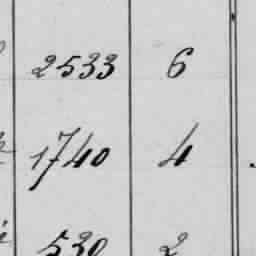 2533 6
1740 4
530 2